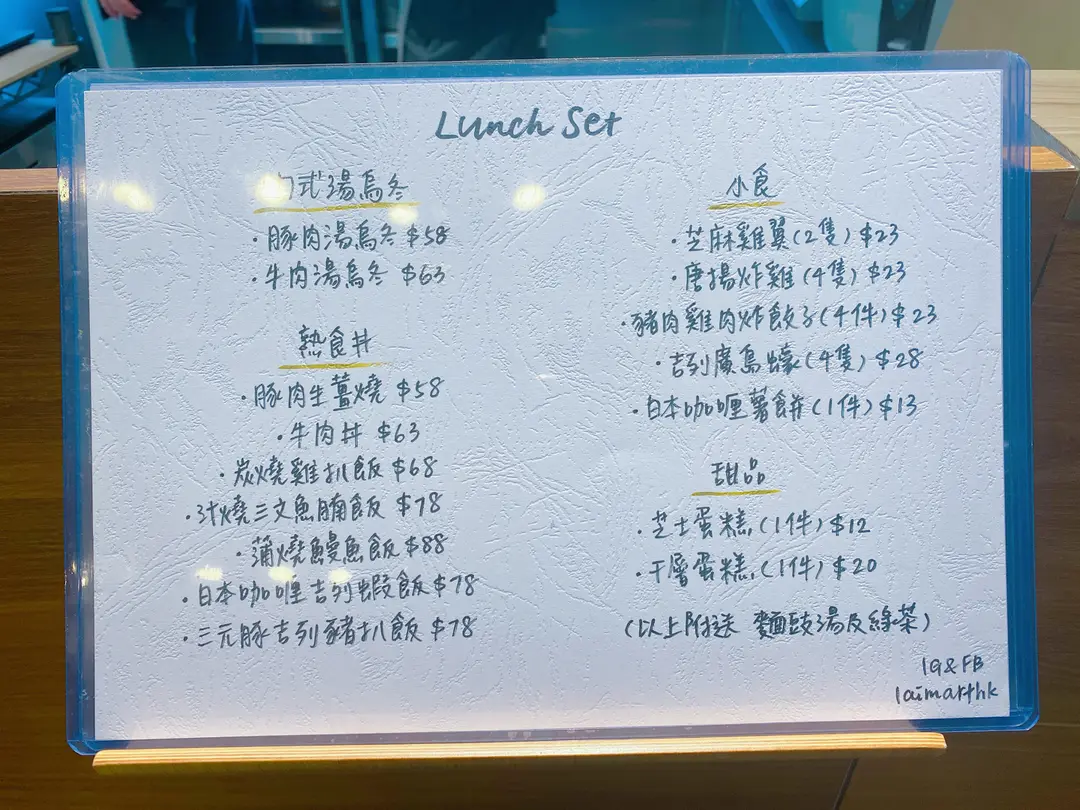 Lunch Set
式湯烏冬
·豚肉湯烏冬 $58
·牛肉湯烏冬 $63
熟食丼
·豚肉生薑燒 $58
·牛肉丼 $63
·炭燒雞扒飯 $68
·汁燒三文魚腩飯 $78
·蒲燒鰻魚飯 $88
·日本咖喱吉列蝦飯 $78
·三元豚吉列豬扒飯 $78
小食
·芝麻雞翼(2隻) $23
·唐揚炸雞(4隻) $23
·豬肉雞肉炸餃子(4件) $23
·吉列廣島蠔(4隻) $28
·日本咖喱薯餅(1件) $13
甜品
·芝士蛋糕(1件) $12
·千層蛋糕(1件) $20
(以上附送 麵豉湯及綠茶)
IG&FB
laimarthk